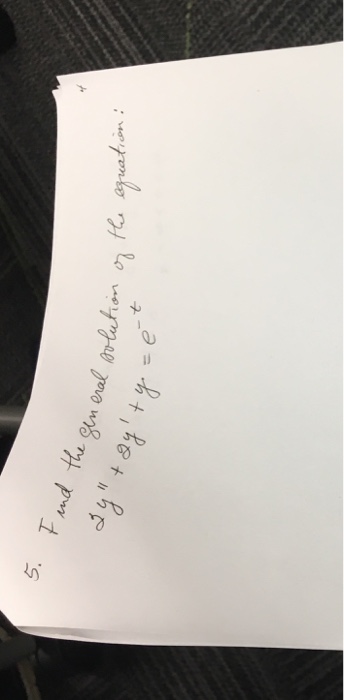 5. Find the general solution of the equation:
2y'' + 2y' + y = e^-t